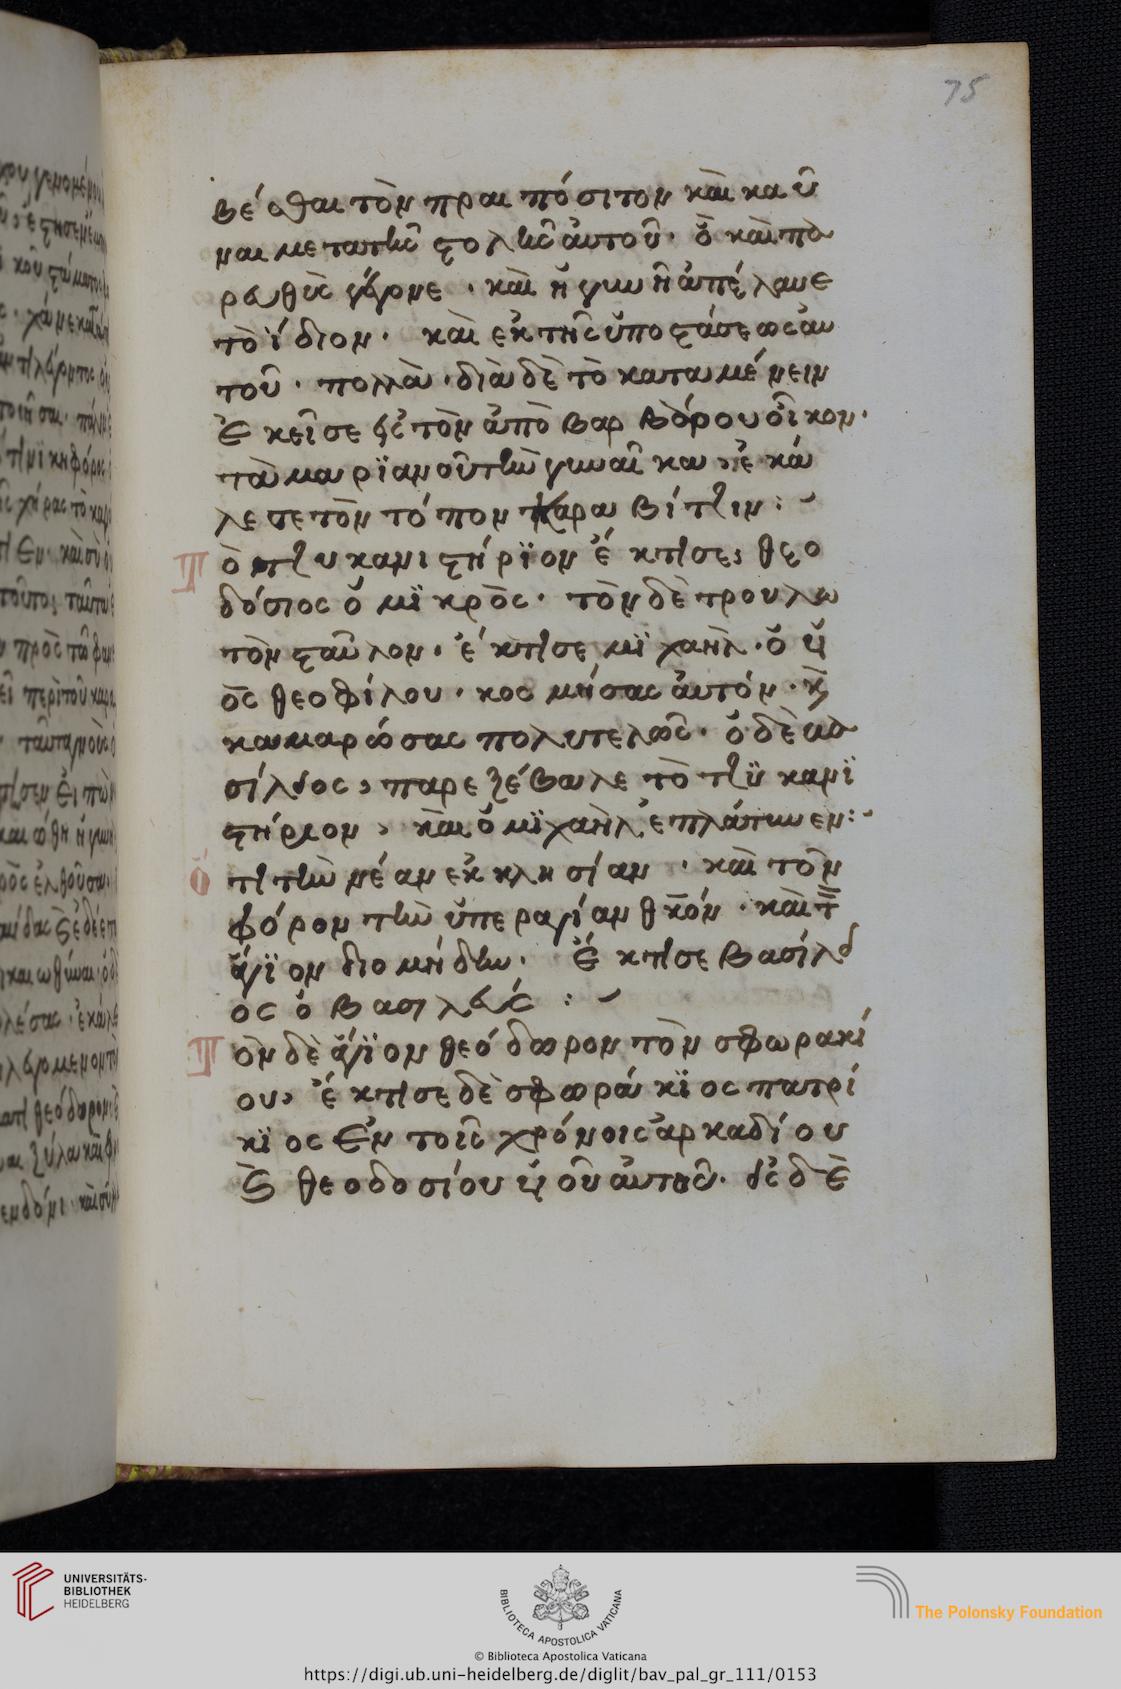 75
βέσθαι τὸν πραιπόσιτον καὶ καῦ
ναι μετὰ τῆς στολῆς αὐτοῦ· ὃ καὶ πα
ρευθὺς γέγονε · καὶ ἡ γυνὴ ἀπέλαυε
τὸ ἴδιον · καὶ ἐκ τῆς ὑποστάσεως αὐ
τοῦ · πολλὰ · διὰ δὲ τὸ καταμένειν
ἐκεῖσε εἰς τὸν ἀπὸ βαρβάρου οἶκον ·
ταὐτὴν γυναῖκα ἐκά
λεσε τὸν τόπον καραβίτζιν :
Τὸ τζυκανιστήριον ἔκτισε, θεο
δόσιος ὁ μικρὸς · τὸν δὲ τρουλω
τὸν σταῦλον · ἔκτισε μιχαὴλ · ὁ υἱ
ὸς θεοφίλου · κοσμήσας αὐτόν · κ
καμαρώσας πολυτελῶς · ὁ δὲ βα
σίλειος, παρεξέβαλε τὸ τζυκανι
στήριον, καὶ ὁ μιχαὴλ ἐπλάτυνεν :
Ὅτι τὴν νέαν ἐκκλησίαν · καὶ τὸν
φόρον τὴν ὑπεραγίαν θκόν · καὶ τ
ἅγιον διομήδην · ἔκτισε βασίλει
ος ὁ βασιλεύς :
Τὸν δὲ ἅγιον θεόδωρον τὸν σφωρακί
ου, ἔκτισε δὲ σφωράκιος πατρί
κιος ἐν τοῖς χρόνοις ἀρκαδίου
καὶ θεοδοσίου υἱοῦ αὐτοῦ · εἰς δὲ
UNIVERSITÄTS-
BIBLIOTHEK
HEIDELBERG
BIBLIOTECA APOSTOLICA VATICANA
The Polonsky Foundation
© Biblioteca Apostolica Vaticana
https://digi.ub.uni-heidelberg.de/diglit/bav_pal_gr_111/0153